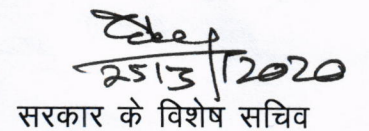 25/3/2020
सरकार के विशेष सचिव